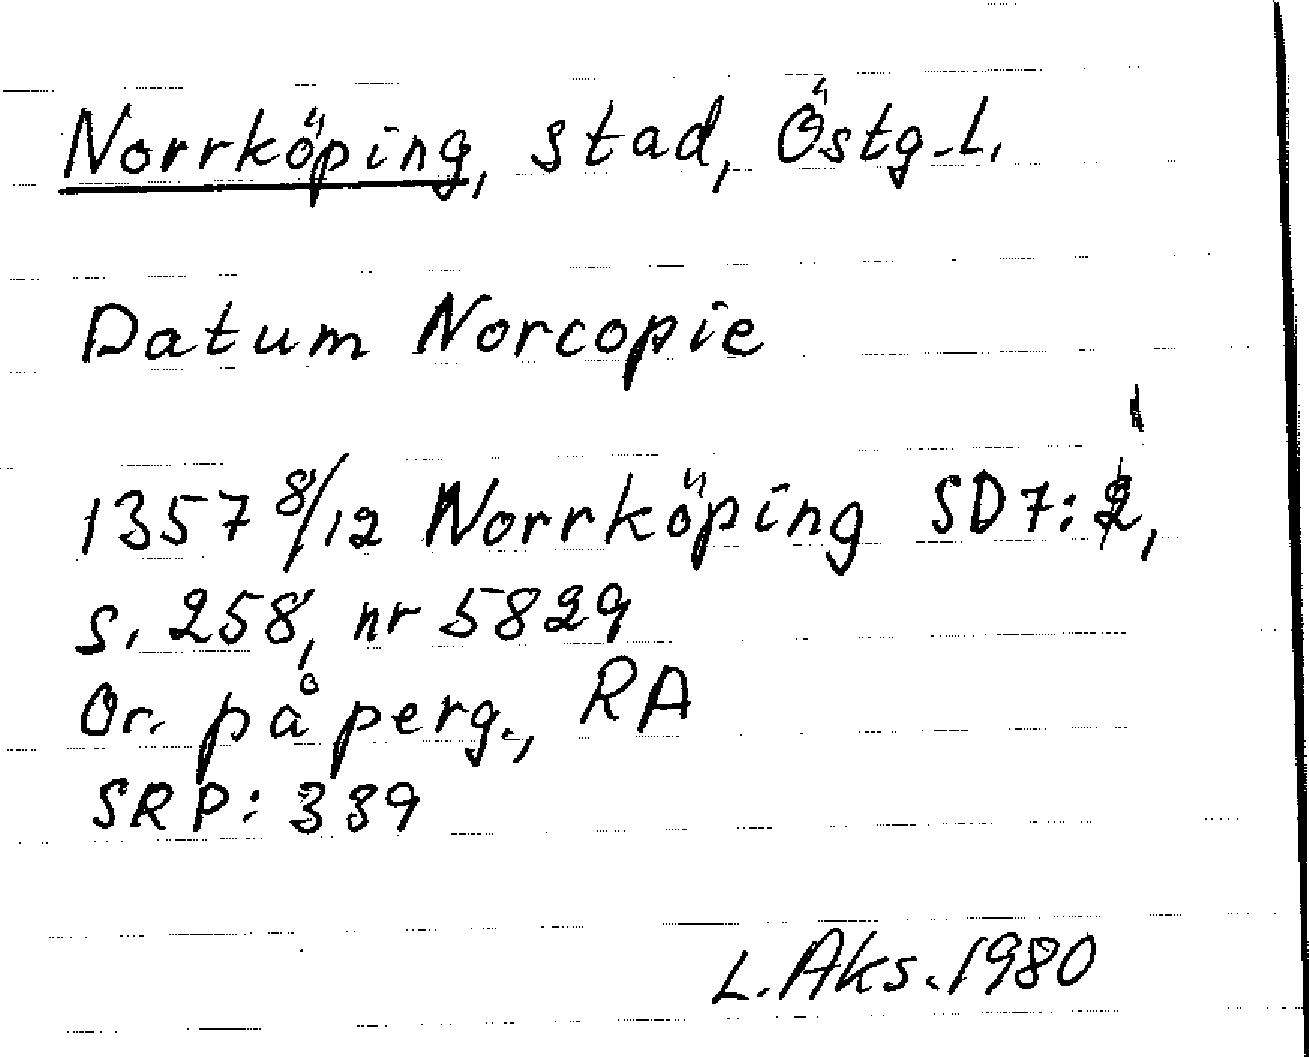 Norrköping, stad, Östg.L.
Datum Norcopie
1357 8/12 Norrköping SD 7:1,
s. 258, nr 5829
Or. på perg., RA
SRP: 339
L. Aks. 1980